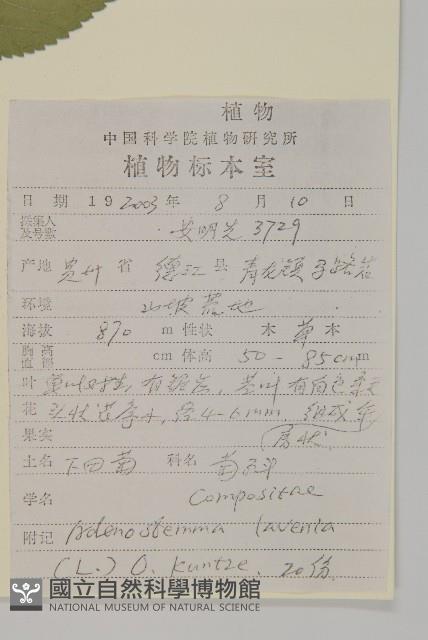 植物
中国科学院植物研究所
植物标本室
日期 19 2003 年 8 月 10 日
采集人及号数 安明先 3729
产地 贵州 省 德江 县 青龙镇
环境 山坡荒地
海拔 870 m 性状 木 草本
胸高直径 cm 体高 50 - 85cm m
叶 有锯齿, 茎叶有白色柔毛
花 头状花序, 径4-6mm, 组成
房状
果实
土名 下田菊 科名 菊科
学名 Compositae
附记 Adenostemma lavenia
(L.) O. Kuntze. 20份
國立自然科學博物館
NATIONAL MUSEUM OF NATURAL SCIENCE